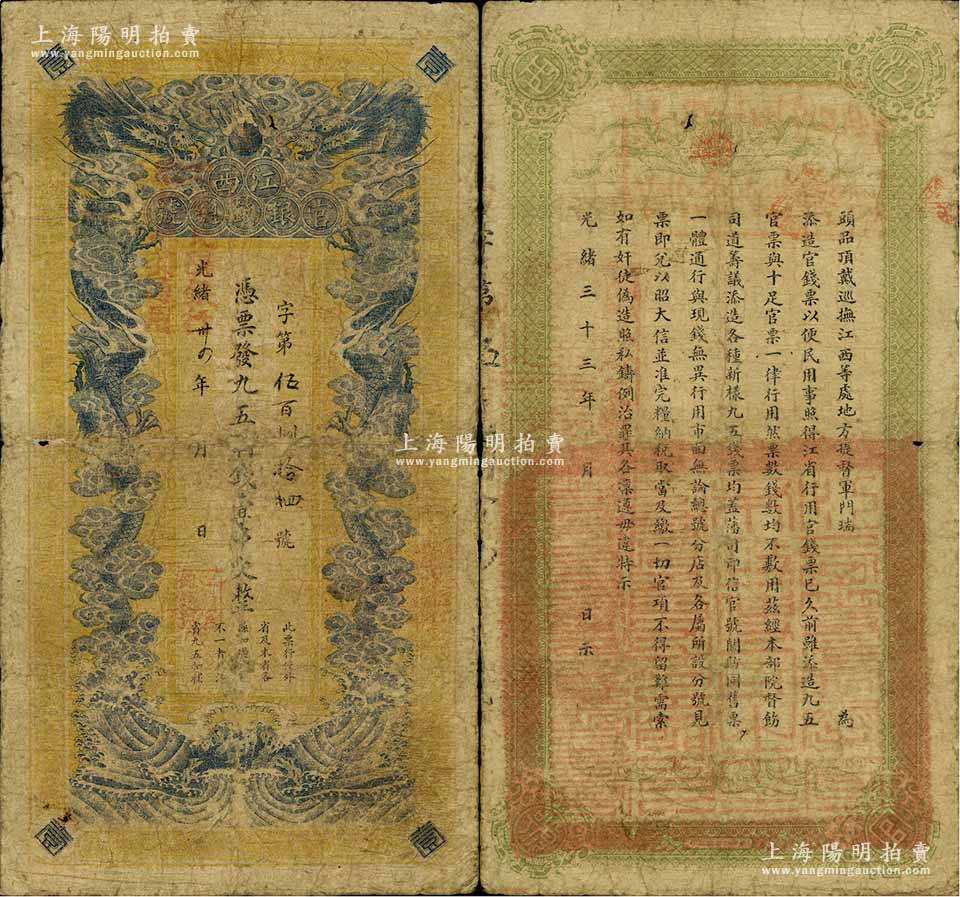 上海陽明拍賣
www.yangmingauction.com
壹
壹
江西
官銀錢號
字第伍百 拾肆號
憑票發九五 錢壹 文整
光緒卅四年 月 日
此票行使外
省及本省各
不一者
省九五
壹
壹
頭品頂戴巡撫江西等處地方提督軍門瑞 為
添造官錢票以便民用事照得江省行用官錢票已久前雖添造九五
官票與十足官票一律行用然票數錢數均不敷用茲經本部院督飭
司道籌議添造各種新樣九五錢票均蓋藩司印信官號關防同舊票
一體通行與現錢無異行用市面無論總號分店及各屬所設分號見
票即兌以昭大信並准完糧納稅取當及繳一切官項不得留難需索
如有奸徒偽造照私鑄例治罪其各凜遵毋違特示
光緒三十三年 月 日示
上海陽明拍賣
www.yangmingauction.com
上海陽明拍賣
www.yangmingauction.com